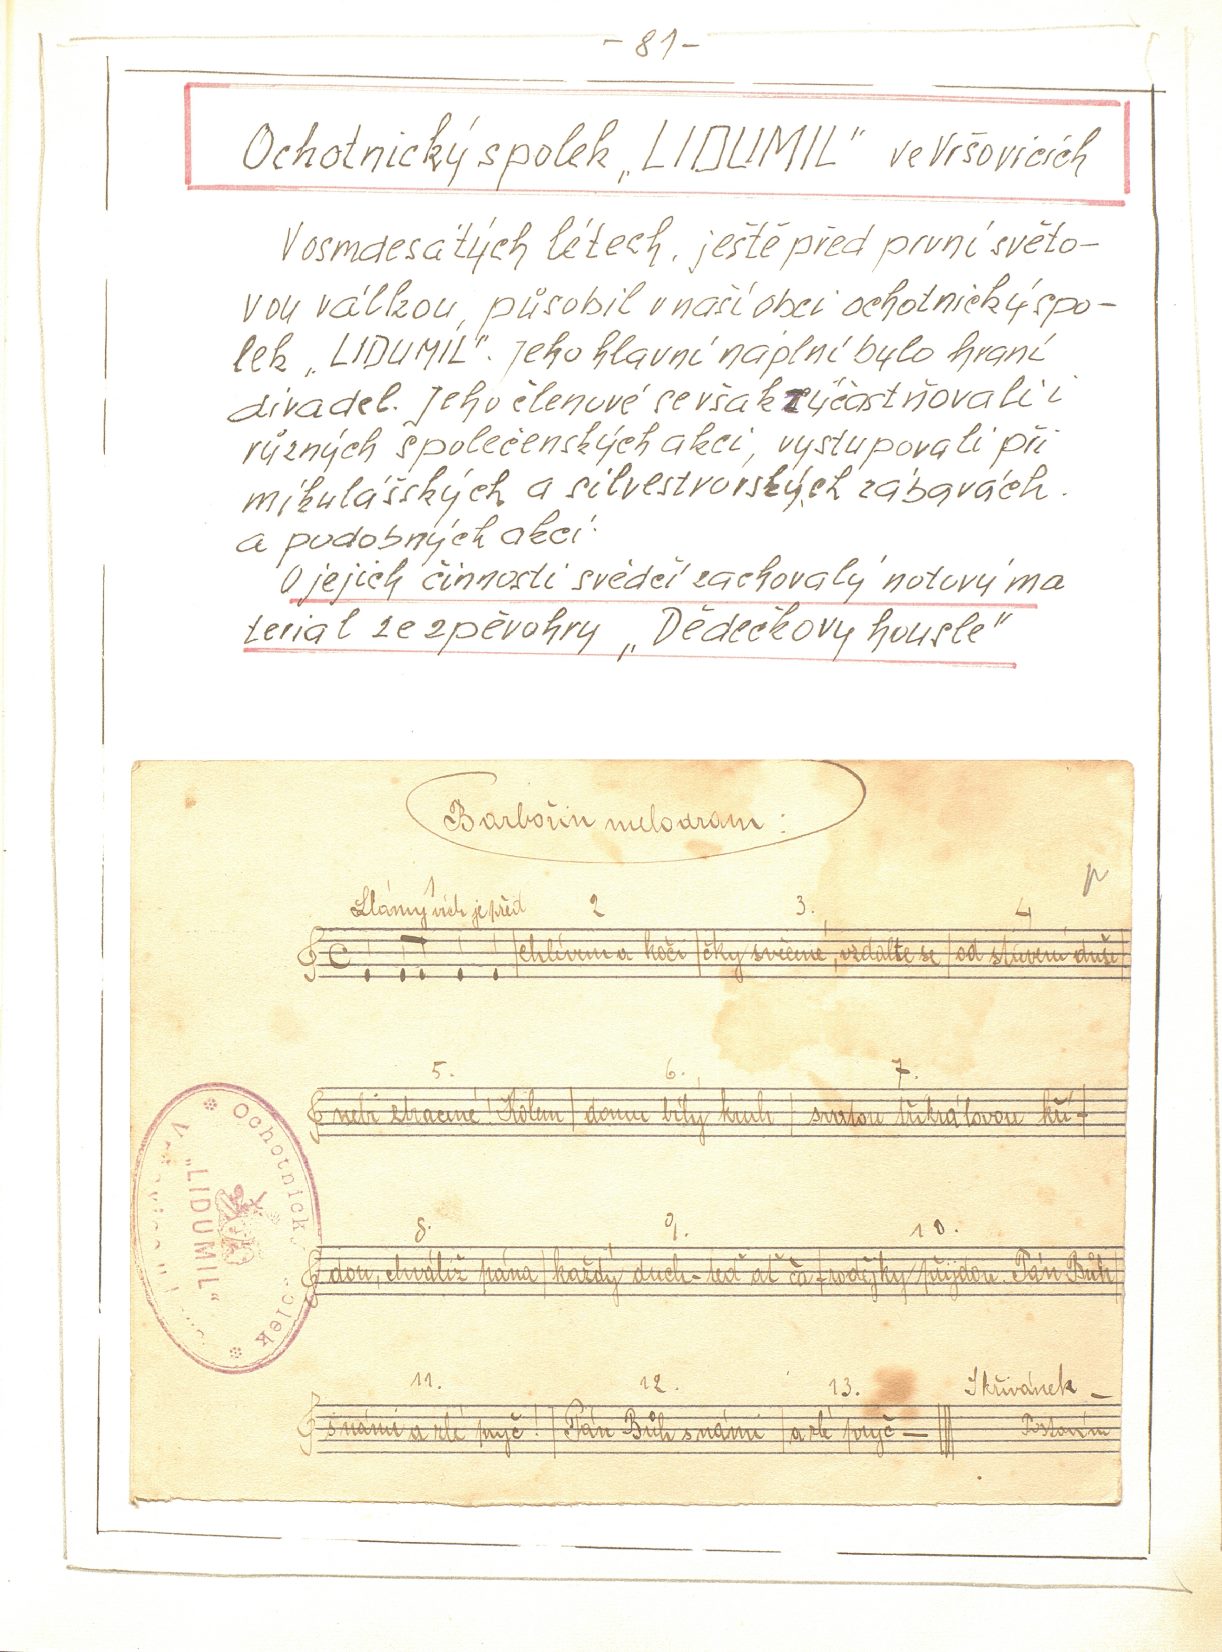 - 81 -
Ochotnický spolek „LIDUMIL" ve Vršovicích
V osmdesátých létech, ještě před první světo-
vou válkou, působil v naší obci ochotnický spo-
lek „LIDUMIL". Jeho hlavní náplní bylo hraní
divadel. Jeho členové se však zúčastňovali i
různých společenských akcí, vystupovali při
mikulášských a silvestrovských zábavách
a podobných akcí.
O jejich činnosti svědčí zachovalý notový ma
terial ze zpěvohry „Dědečkovy housle"
Barbořin melodram:
Slámy vích je před
1 2 3. 4
chlívem a koči čky svěcené, vzdalte se od stavení duše
5. 6. 7.
neb. ztracené! Kolem domu bílý kruh svatou tříkrálovou kří-
8. 9. 10.
dou, chváliž pána každý duch - teď ať ča-rodějky přijdou. Pán Bůh
11. 12. 13. Skřivánek -
s námi a zlé pryč! Pán Bůh s námi a zlé pryč -
Ochotnick. olek
„LIDUMIL"